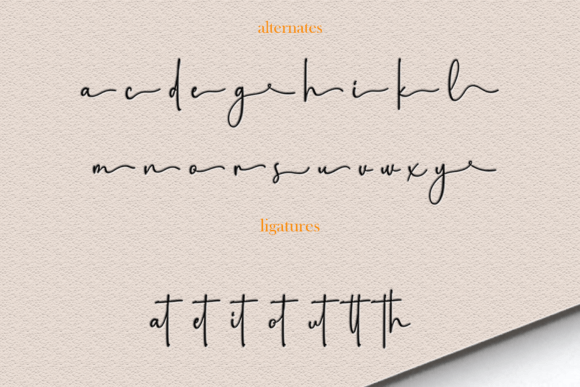 alternates
a c d e g h i k l
m n o r s u v w x y
ligatures
at et it ot ut tt th